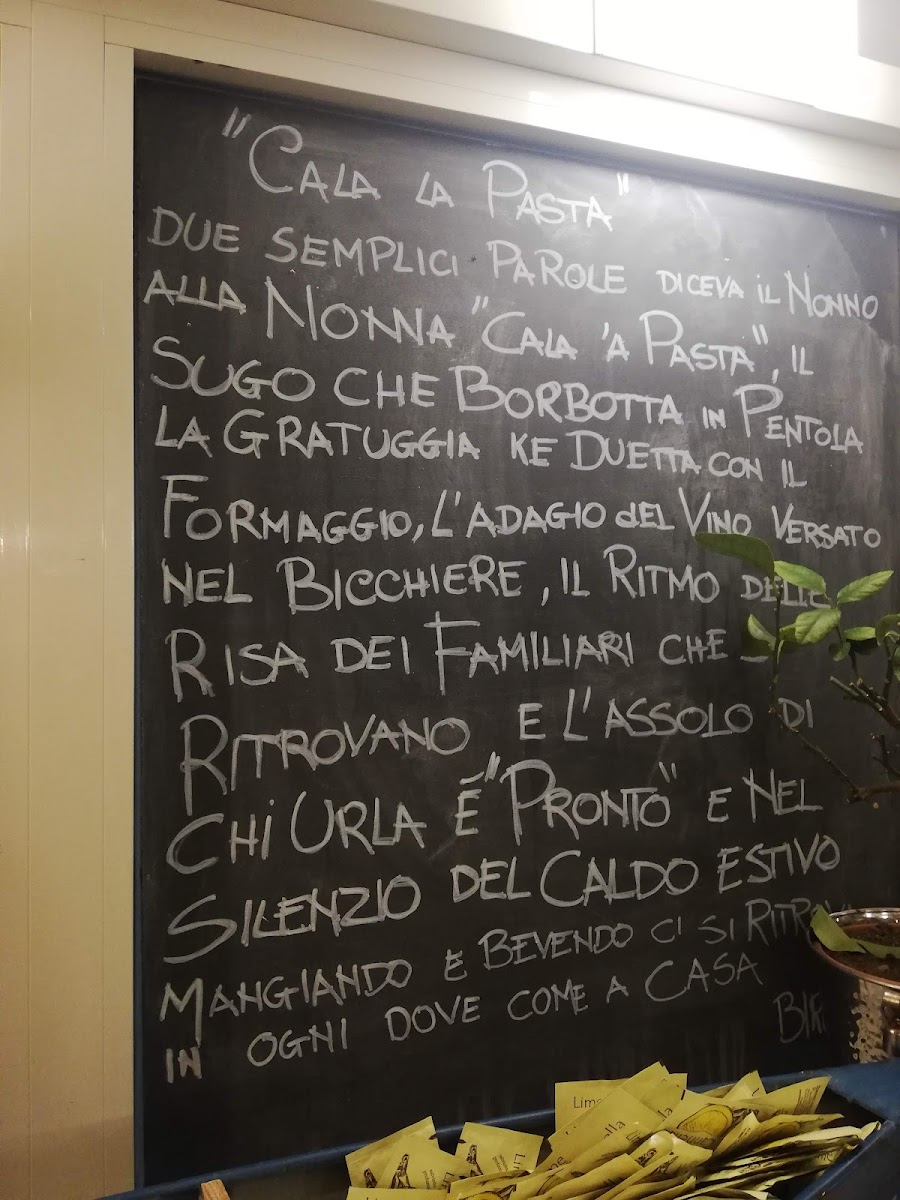 "CALA LA PASTA"
DUE SEMPLICI PAROLE DICEVA iL NONNO
ALLA NONNA "CALA 'A PASTA", IL
SUGO CHE BORBOTTA iN PENTOLA
LA GRATUGGIA KE DUETTA CON IL
FORMAGGIO, L'ADAGIO dEL VINO VERSATO
NEL BICCHIERE, IL RITMO DELLE
RISA DEI FAMILIARI CHE
RITROVANO E L'ASSOLO DI
CHI URLA É "PRONTO" E NEL
SILENZIO DEL CALDO ESTIVO
MANGIANDO E BEVENDO CI SI
IN OGNI DOVE COME A CASA